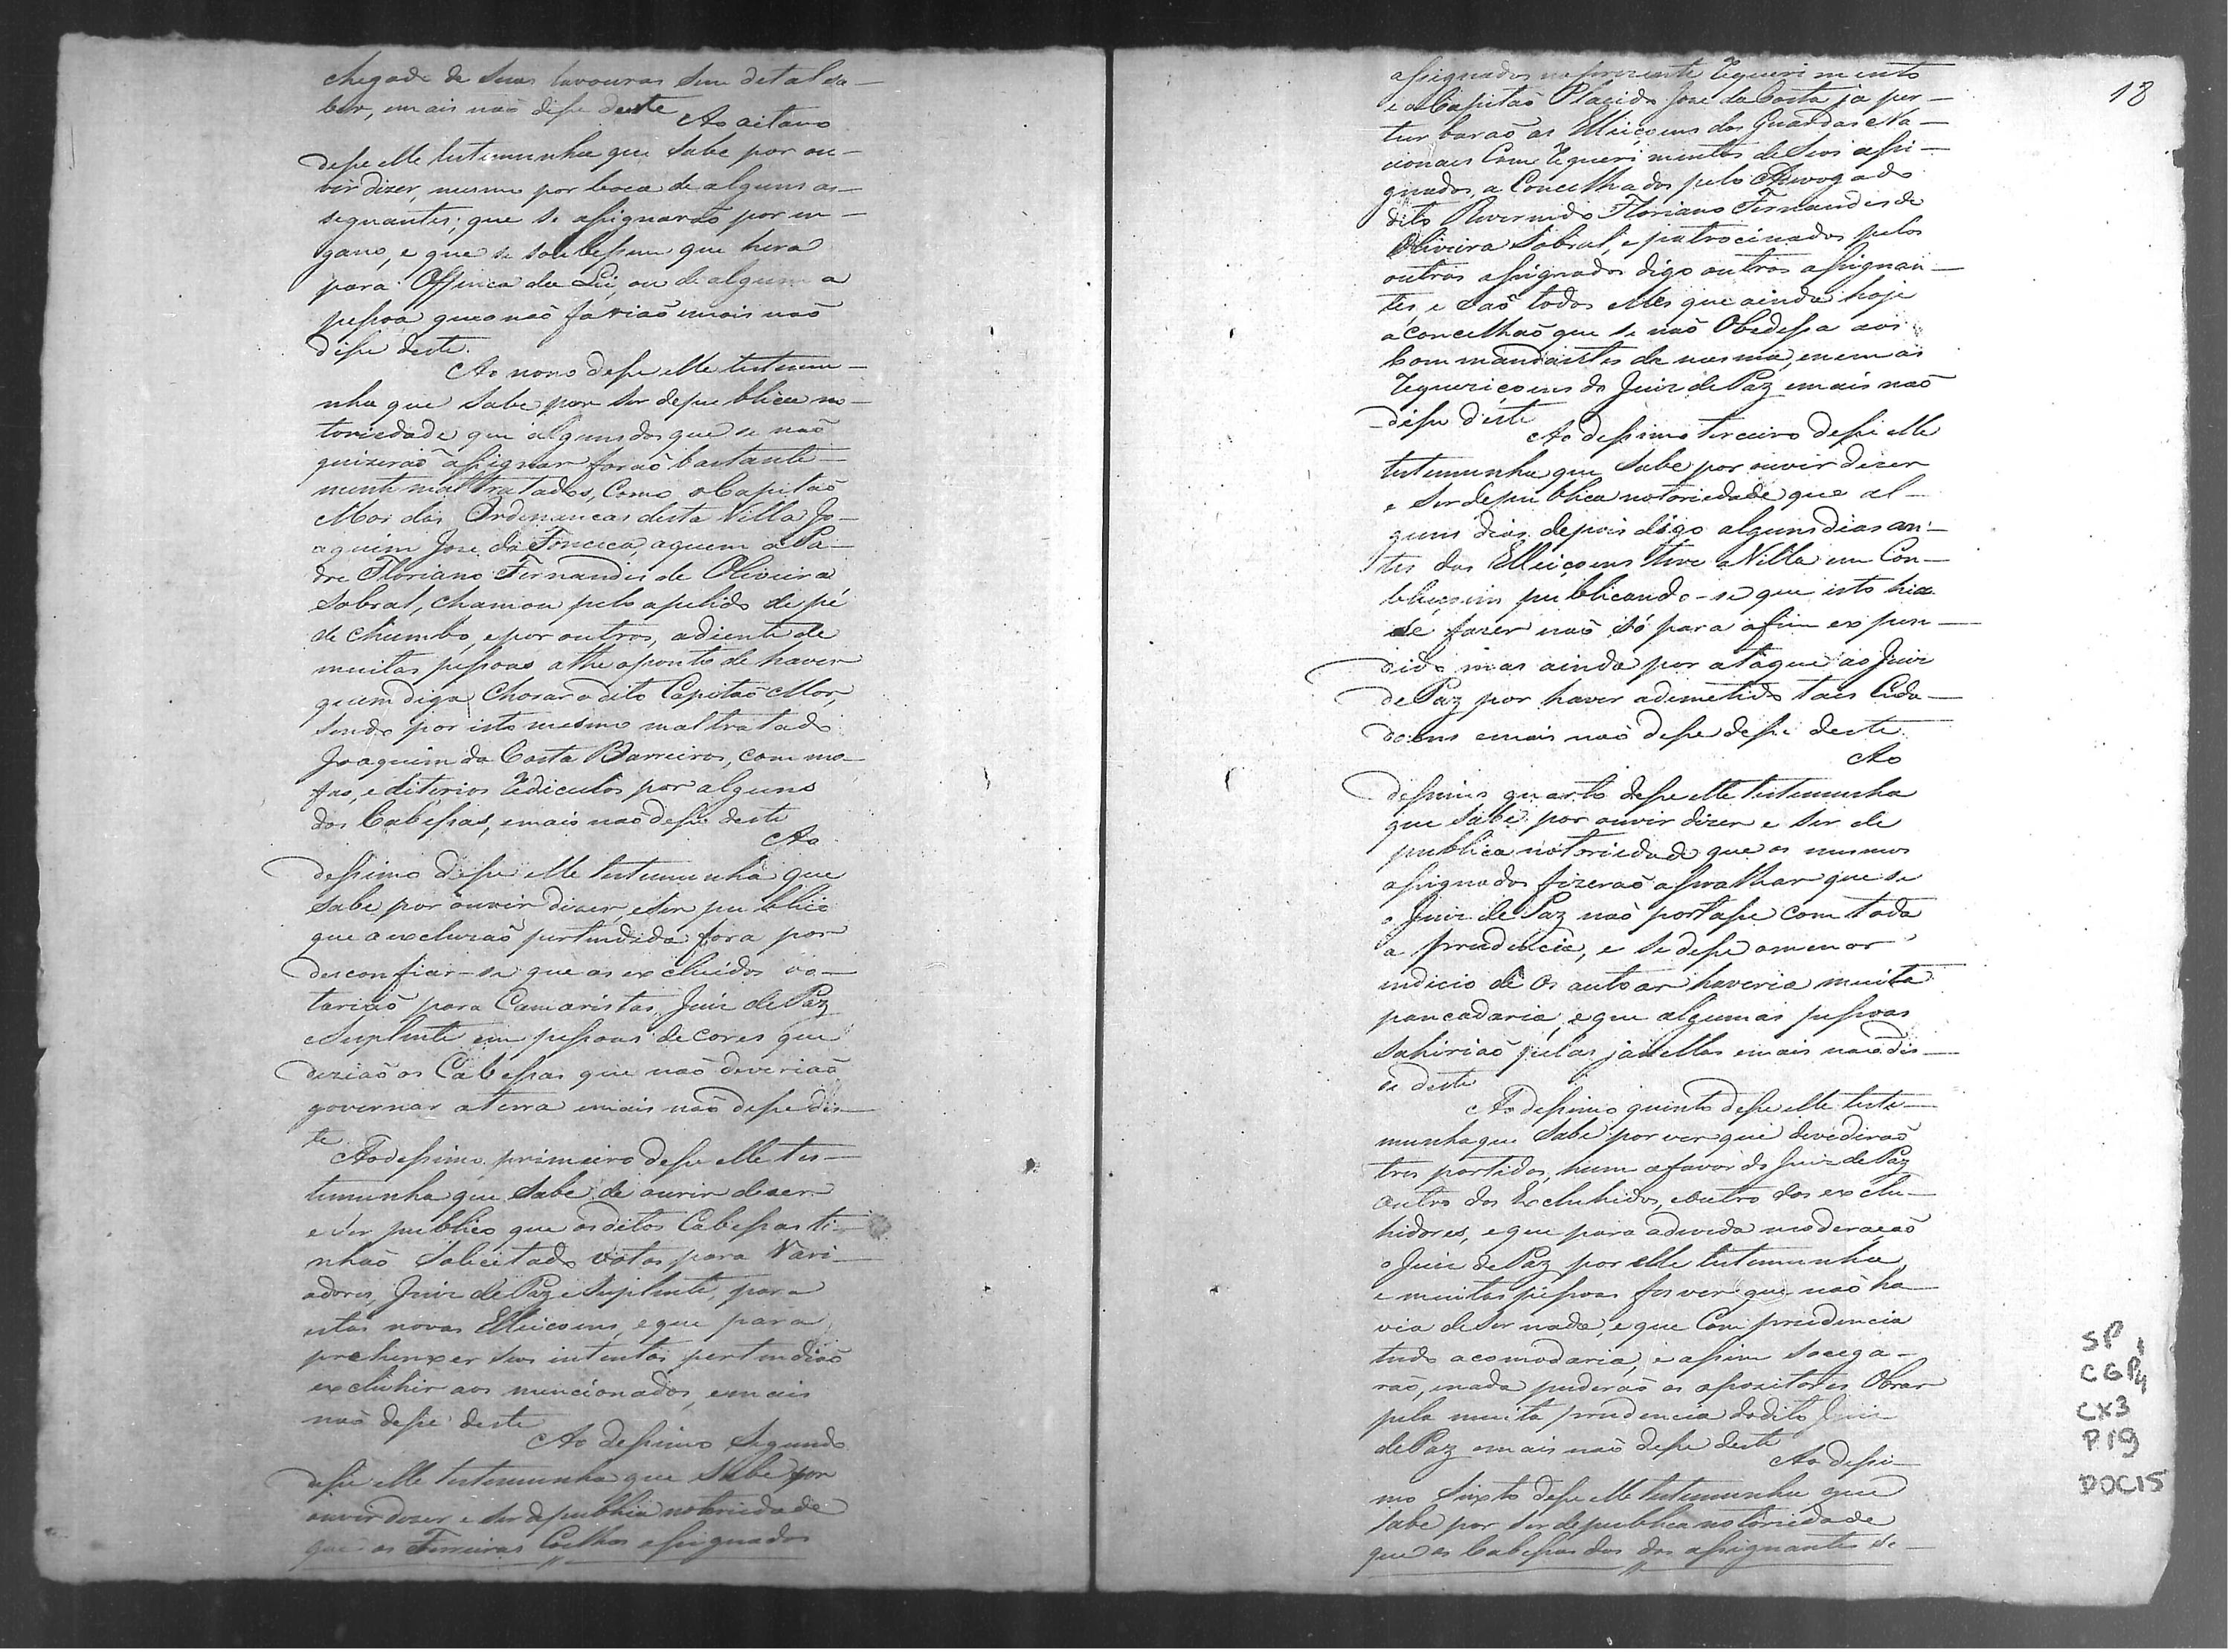 chegado de suas lavouras sem de tal sa-
ber, emais naõ disse deste Ao oitavo
disse elle testemunha que sabe por ou-
vir dizer, mesmo por boca de alguns as-
segnantes; que se assignaraõ por en-
gano, e que se soubessem que hera
para Offença da Lei, ou de alguma
pessoa que o naõ fariaõ emais naõ
disse deste.
Ao nono disse elle testemu-
nha que sabe por ser de publica no-
toriedade que alguns dos que se naõ
quizeraõ assignar foraõ bastante-
mente maltratados, Como o Capitaõ
Mor das Ordenancas desta Villa Jo-
aquim Joze da Fonceca, aquem o Pa-
dre Floriano Fernandes de Oliveira
Sobral, chamou pelo apelido de pé
de chumbo, e por outros, adiente de
muitas pessoas athe aponto de haver
quem diga Chorar o dito Capitaõ Mor,
sendo por isto mesmo maltratado
Joaquim da Costa Barreiros, com mo-
fas, e diterios rediculos por alguns
dos Cabessas, emais naõ disse deste
Ao
dessimo disse elle testemunha que
sabe por ouvir dizer, e ser publico
que a excluzaõ pertendida fora por
desconfiar-se que os excluidos vo-
tariaõ para Camaristas, Juiz de Paz
e Suplente em pessoas de cores que
deziaõ os Cabessas que naõ deveriaõ
governar a terra emais naõ disse des-
te
Ao dessimo primeiro disse elle tes-
temunha que sabe de ouvir dezer
e ser publico que os ditos Cabessas ti-
nhaõ Solicitado votos para Vari-
adores, Juiz de Paz e Suplente, para
estas novas Elleicoens, e que para
prehenxer seus intentos pertendiaõ
excluhir aos mencionados, emais
naõ disse deste
Ao dessimo Segundo
disse elle testemunha que Sabe por
ouvir dezer e ser de publica notoriedade
que os Ferreiras Coelhos assignados
18
assignados no prezente requerimento
e o Capitaõ Placido Joze da Costa ja per-
turbaraõ as Elleiçoens das Guardas Na-
cionais Com requerimentos de seos assi-
gnados, a Concelhados pelo Advogado
dito Reverendo Floriano Fernandes de
Oliveira Sobral, e patrocinados pelos
outros assignados digo outros assignan-
tes, e saõ todos elles que ainda hoje
aconcelhaõ que se naõ Obedessa aos
Commandantes da mesma, enem as
requeriçoens do Juiz de Paz emais naõ
disse deste
Ao dessimo terceiro disse elle
testemunha que Sabe por ouvir dezer
e ser de publica notoriedade que al-
guns dias depois digo alguns dias an-
tes das Elleiçoens teve a Villa em Con-
publicando-se que isto hia
se fazer naõ só para o fim expen-
dido mas ainda por ataque ao Juiz
de Paz por haver ademetido tais Cida-
doens emais naõ disse disse deste
Ao
dessimo quarto disse elle testemunha
que sabe por ouvir dizer e ser de
publica notoriedade que os mesmos
assignados fizeraõ aspalhar que se
o Juiz de Paz naõ portasse com toda
a prudencia, e se desse o menor
indicio de os autoar haveria muita
pancadaria, e que algumas pessoas
sahiriaõ pelas janellas emais naõ dis-
se deste
Ao dessimo quinto disse elle teste-
munha que Sabe por ver que devediraõ
tres partidos, hum a favor do Juiz de Paz
outro dos Excluhidos, eoutro dos exclu-
hidores, e que para a devida moderaçaõ
o Juiz de Paz por elle testemunha,
e muitas pessoas fes ver que naõ ha-
via de ser nada, e que Com prudencia
tudo acomodaria, e assim socega-
raõ, enada puderaõ os opozitores Obrar
pela muita prudencia do dito Juiz
de Paz emais naõ disse deste
Ao dessi-
mo Sexto disse elle testemunha que
sabe por ser de publica notoriedade
que os Cabessas dos dos assignantes se-
SP 1
CGP4
CX3
P19
DOC15